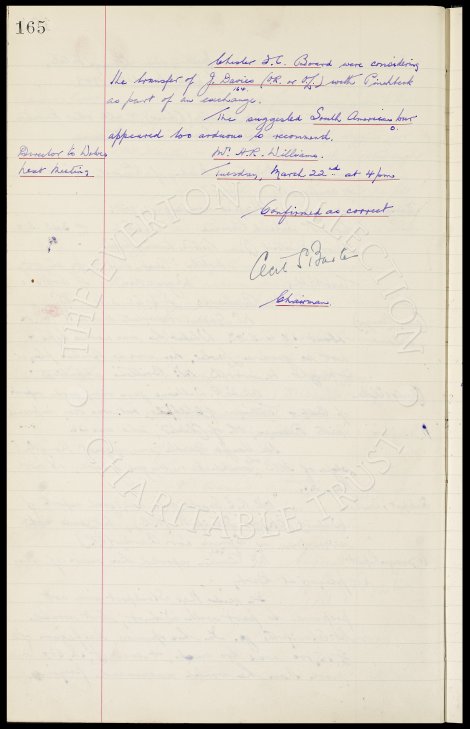 165
Chester F.C. Board were considering
the transfer of J. Davies (O.R. or O.L.) with Pinchbeck
164.
as part of an exchange.
The suggested South American tour
appeared too arduous to recommend.
Director to Wolves Mr. H.R. Williams.
Next Meeting Tuesday, March 22nd at 4pm
Confirmed as correct
Cecil S. Baxter
Chairman.
THE EVERTON COLLECTION
CHARITABLE TRUST